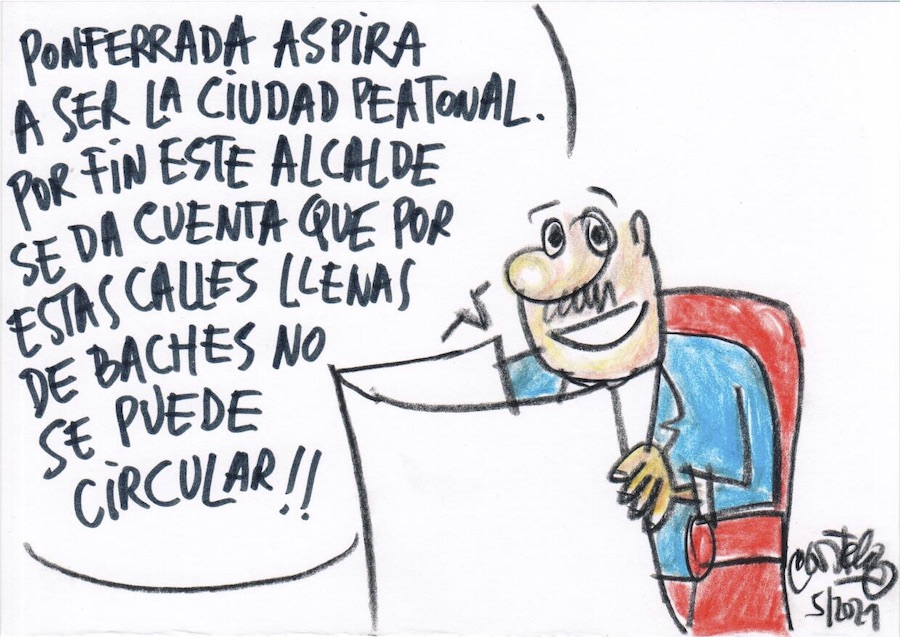 PONFERRADA ASPIRA
A SER LA CIUDAD PEATONAL.
POR FIN ESTE ALCALDE
SE DA CUENTA QUE POR
ESTAS CALLES LLENAS
DE BACHES NO
SE PUEDE
CIRCULAR!!
5/2021